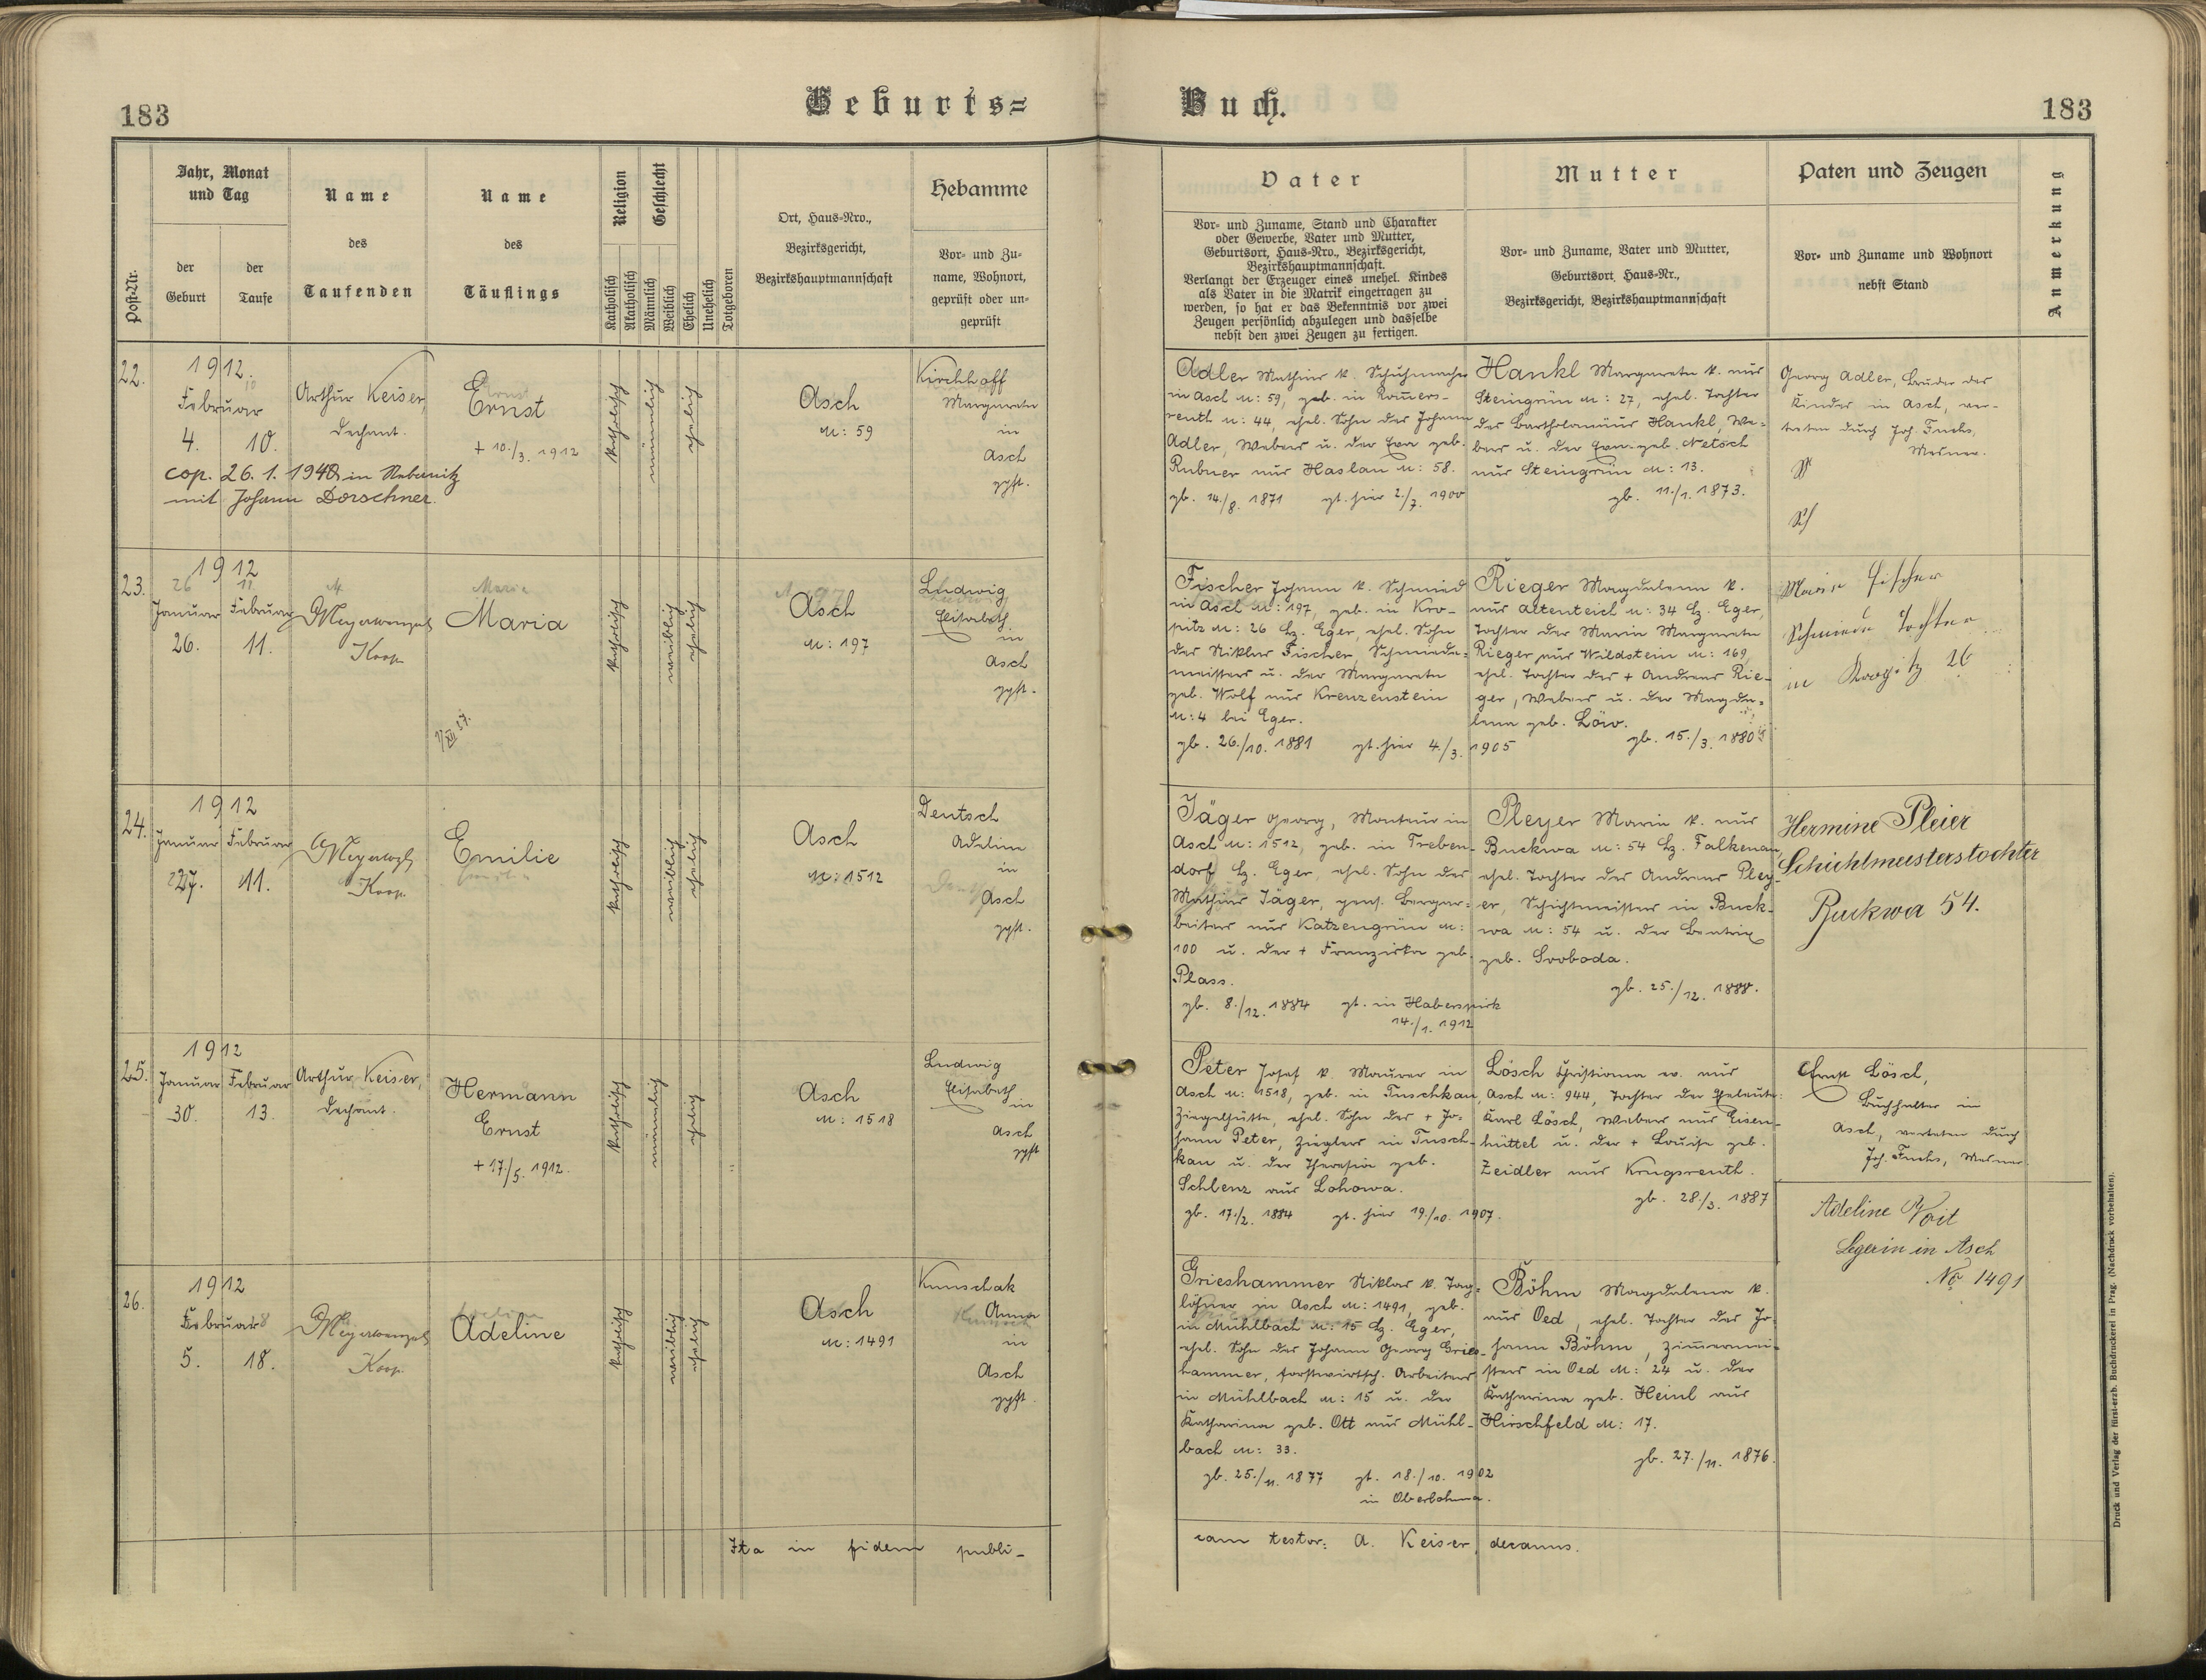 183
Geburts=
Buch.
183
Post-Nr.
Jahr, Monat
und Tag
der
Geburt
der
Taufe
Name
des
Taufenden
Name
des
Täuflings
Religion
Katholisch
Akatholisch
Geschlecht
Männlich
Weiblich
Ehelich
Unehelich
Totgeboren
Ort, Haus-Nro.,
Bezirksgericht,
Bezirkshauptmannschaft
Hebamme
Vor- und Zu-
name, Wohnort,
geprüft oder un-
geprüft
Vater
Vor- und Zuname, Stand und Charakter
oder Gewerbe, Vater und Mutter,
Geburtsort, Haus-Nro., Bezirksgericht,
Bezirkshauptmannschaft.
Verlangt der Erzeuger eines unehel. Kindes
als Vater in die Matrik eingetragen zu
werden, so hat er das Bekenntnis vor zwei
Zeugen persönlich abzulegen und dasselbe
nebst den zwei Zeugen zu fertigen.
Mutter
Vor- und Zuname, Vater und Mutter,
Geburtsort, Haus-Nr.,
Bezirksgericht, Bezirkshauptmannschaft
Paten und Zeugen
Vor- und Zuname und Wohnort
nebst Stand
Anmerkung
22.
1912.
Februar
4. 10.
cop. 26. 1. 1948 in Nebanitz
mit Johann Dorschner.
Arthur Keiser,
Dechant.
Ernst
+ 10./3. 1912
katholisch
männlich
ehelich
Asch
N: 59
Kirchhoff
Margareta
in
Asch
gpft.
Adler Mathias k. Schuhmacher
in Asch N: 59, geb. in Romers-
reuth N: 44, ehel. Sohn des Johann
Adler, Webers u. der Eva geb.
Rubner aus Haslau N: 58.
gb. 14./8. 1871 gt. hier 2./7. 1900
Hankl Margareta k. aus
Steingrün N: 27, ehel. Tochter
des Bartholomäus Hankl, We-
bers u. der Eva geb. Netsch
aus Steingrün N: 13.
gb. 11./1. 1873.
Georg Adler, Bruder des
Kindes in Asch, ver-
treten durch Joh. Fuchs,
Mesner.
23.
1912
26 11
Januar Februar
26. 11.
Meyerwenzel
Koop.
Maria
Maria
katholisch
weiblich
ehelich
Asch
N: 197
Ludwig
Elisabeth
in
Asch
gpft.
Fischer Johann k. Schmied
in Asch N: 197, geb. in Kro-
pitz N: 26 Bz. Eger, ehel. Sohn
des Niklas Fischer, Schmiede-
meisters u. der Margareta
geb. Wolf aus Kreuzenstein
N: 4 bei Eger.
gb. 26./10. 1881 gt. hier 4./3. 1905
Rieger Magdalena k.
aus Altenteich N: 34 Bz. Eger,
Tochter der Maria Margareta
Rieger aus Wildstein N: 169,
ehel. Tochter des + Andreas Rie-
ger, Webers u. der Magda-
lena geb. Löw.
gb. 15./3. 1880
Maria Fischer
Schmieds Tochter
in 26
24.
1912
Januar Februar
27. 11.
Koop.
Emilie
katholisch
weiblich
ehelich
Asch
N: 1512
Deutsch
Adeline
in
Asch
gpft.
Jäger Georg, Monteur in
Asch N: 1512, geb. in Treben-
dorf Bz. Eger, ehel. Sohn des
Mathias Jäger, pens. Bergar-
beiters aus Katzengrün N:
100 u. der + Franziska geb.
Plass.
gb. 8./12. 1884 gt. in Haberspirk
14./1. 1912
Pleyer Maria k. aus
Buckwa N: 54 Bz. Falkenau,
ehel. Tochter des Andreas Pley-
er, Schichtmeisters in Buck-
wa N: 54 u. der Beatrix
geb. Svoboda.
gb. 25./12. 1888.
Hermine Pleier
Schichtmeisterstochter
Buckwa 54.
25.
1912
Januar Februar
30. 13.
Arthur Keiser,
Dechant.
Hermann
Ernst
+ 17./5. 1912.
katholisch
männlich
ehelich
Asch
N: 1518
Ludwig
Elisabeth
in
Asch
gpft
Peter Josef k. Maurer in
Asch N: 1518, geb. in Tuschkau,
Ziegelhütte, ehel. Sohn des + Jo-
hann Peter, Zieglers in Tusch-
kau u. der Theresia geb.
Schlenz aus Lohowa.
gb. 17./2. 1884 gt. hier 19./10. 1907.
Lösch Christiana ev. aus
Asch N: 944, Tochter der Eheleute
Karl Lösch, Webers aus Eisen-
hüttel u. der + Louise geb.
Zeidler aus Krugsreuth.
gb. 28./3. 1887
Ernst Lösch,
Buchhalter in
Asch, vertreten durch
Joh. Fuchs, Mesner.
26.
1912
Februar
5. 18.
Meyerwenzel
Koop.
Adeline
katholisch
weiblich
ehelich
Asch
N: 1491
Kunschak
Anna
in
Asch
gpft.
Grieshammer Niklas k. Tag-
löhner in Asch N: 1491, geb.
in Mühlbach N: 15 Bz. Eger,
ehel. Sohn des Johann Georg Gries-
hammer, forstwirtsch. Arbeiters
in Mühlbach N: 15 u. der
Katharina geb. Ott aus Mühl-
bach N: 33.
gb. 25./11. 1877 gt. 18./10. 1902
in Oberlohma.
Böhm Magdalena k.
aus Oed, ehel. Tochter des Jo-
hann Böhm, Zimmermei-
sters in Oed N: 24 u. der
Katharina geb. Heinl aus
Hirschfeld N: 17.
gb. 27./11. 1876.
Adeline Voit
Legerin in Asch
No 1491
Ita in fidem publi-
cam testor: A. Keiser, decanus.
Druck und Verlag der fürst-erzb. Buchdruckerei in Prag. (Nachdruck vorbehalten).